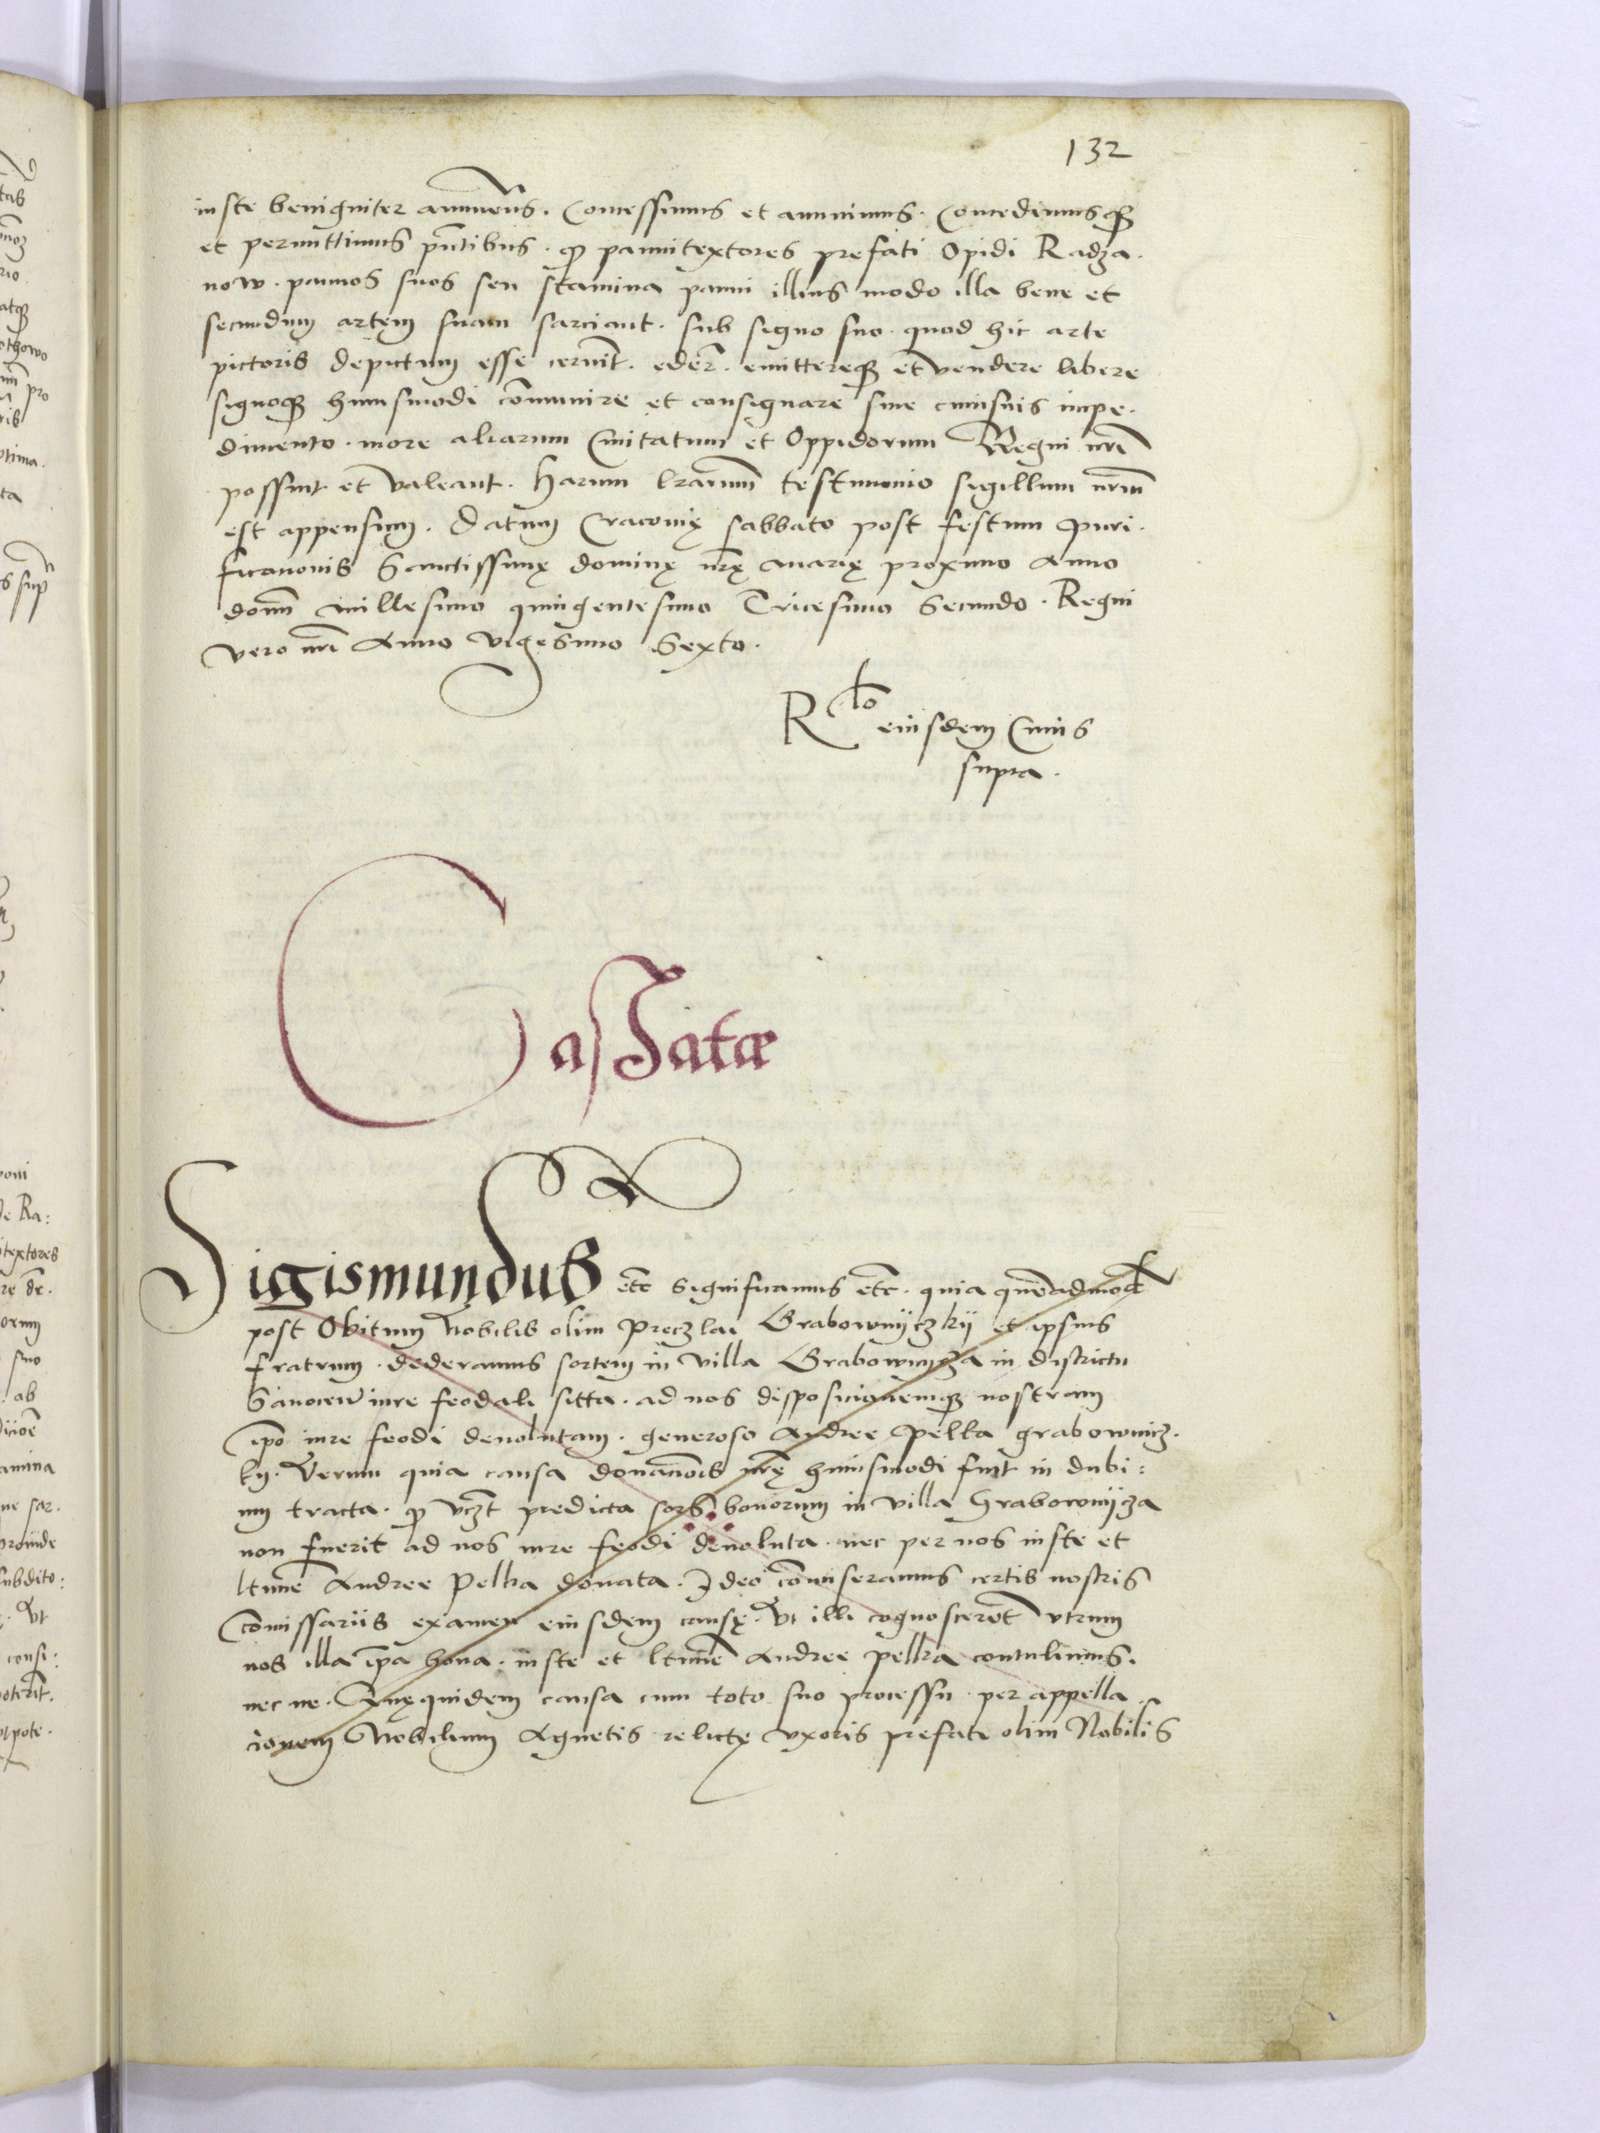 132
iuste benigniter annueñs. Concessimus et annuimus. Concedimusqꝫ
et permittimus pñtibus. qꝫ pannitextores prefati Opidi Radza.
now. pannos suos seu stamina panni illius modo illa bene et
secundum artem suam sarciant. sub signo suo. quod hic arte
pictoris depictum esse cernit̃. eder̃. emittereqꝫ et vendere libere
signoqꝫ huiusmodi cõmunire et consignare sine cuiusuis impe.
dimento. more aliarum Ciuitatum et Oppidorum Regni nr̃i
possint et valeant. Harum lrãrum testimonio sigillum nr̃um
est appensum. Datum Cracouię sabbato post festum Puri.
ficationis Sanctissimę dominę nr̃ę Marię proximo Anno
domĩ millesimo quingentesimo Tricesimo Secundo. Regni
vero nr̃i Anno vigesimo Sexto.
R^lo eiusdem Cuius
supra.
Cassatæ
Sigismundus etc̃ Significamus etc̃. quia quẽadmod
post Obitum Nobilis olim Preczlai Grabowniczkÿ et ipsius
fratrum. dederamus sortem in villa Grabownicza in districtu
Sanocen̄ iure feodali sitta. ad nos disposicionemqꝫ nostram
ip̃o iure feodi deuolutam. generoso Andree Pelka grabownicz.
ky. Verum quia causa donacõis nr̃ę huiusmodi fuit in dubi:
um tracta. qꝫ vcꝫt predicta sors bonorum in villa Grabownÿcza
non fuerit ad nos iure feodi deuoluta. nec per nos iuste et
ltim̃e Andree Pelka donata. Ideo cõmiseramus certis nostris
Cõmissariis examen eiusdem causę. Vt illi cognoscerẽt vtrum
nos illa ip̃a bona. iuste et ltim̃e Andree Pelka contulimus.
nec ne. Quęquidem causa cum toto suo processu per appella
cionem Nobilium Agnetis relictę vxoris prefati olim Nobilis